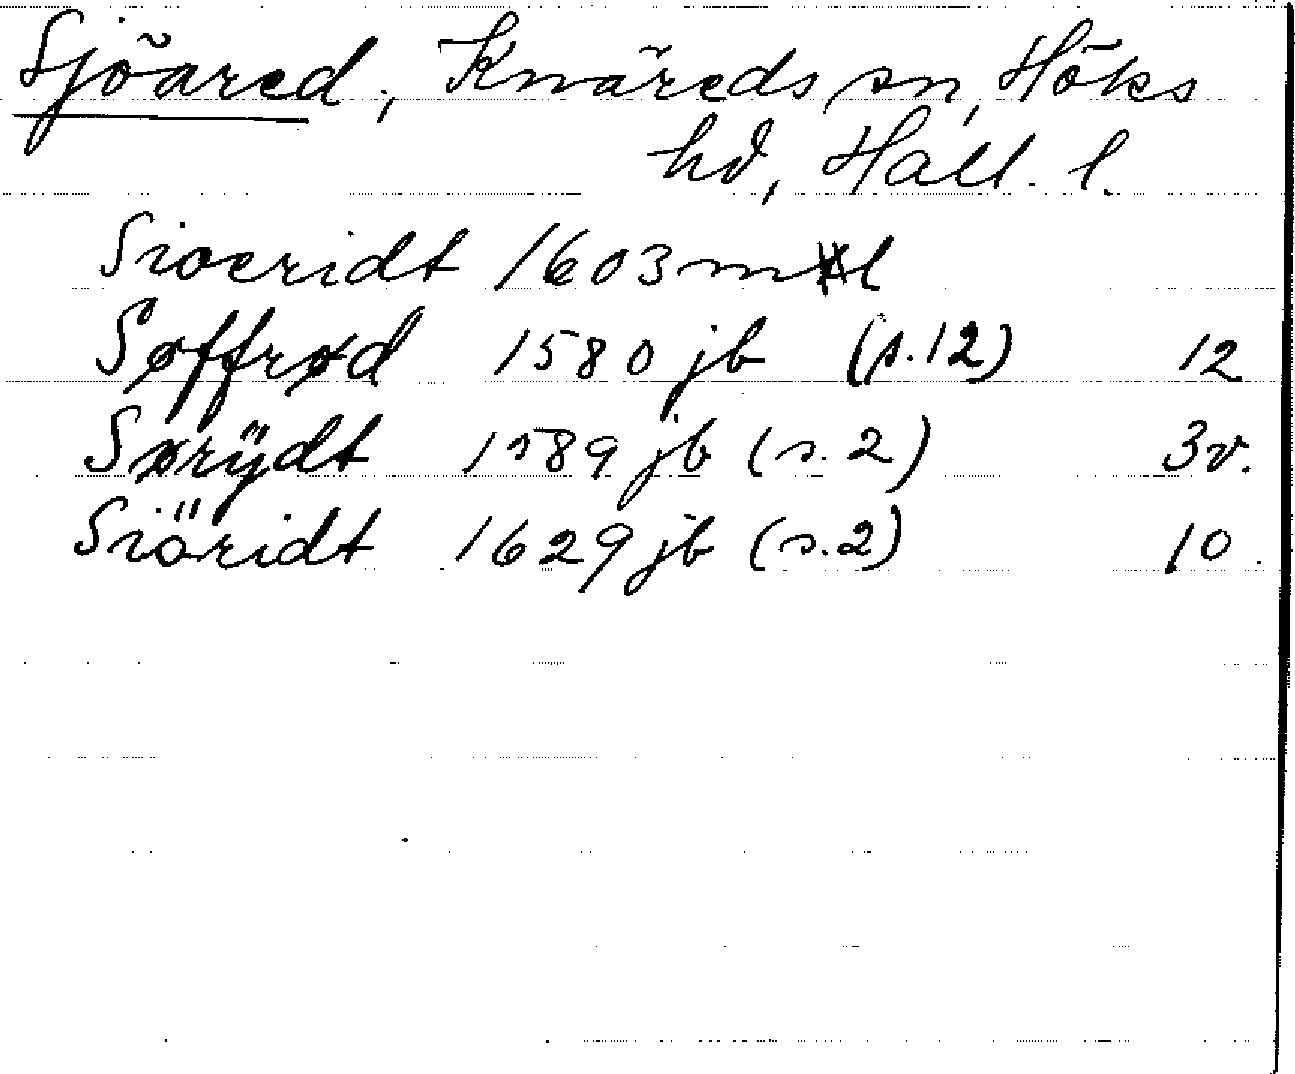 Sjöared, Knäreds sn, Höks
hd, Hall. l.
Sioeridt 1603 mtl
Søffrød 1580 jb (s. 12) 12
Sørÿdt 1589 jb (s. 2) 3v.
Siöridt 1629 jb (s. 2) 10.